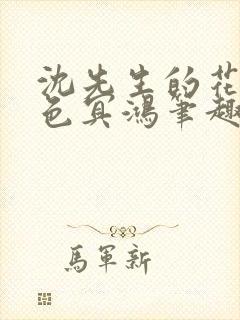 沈先生的花
色冥鴻筆趣
馬軍新